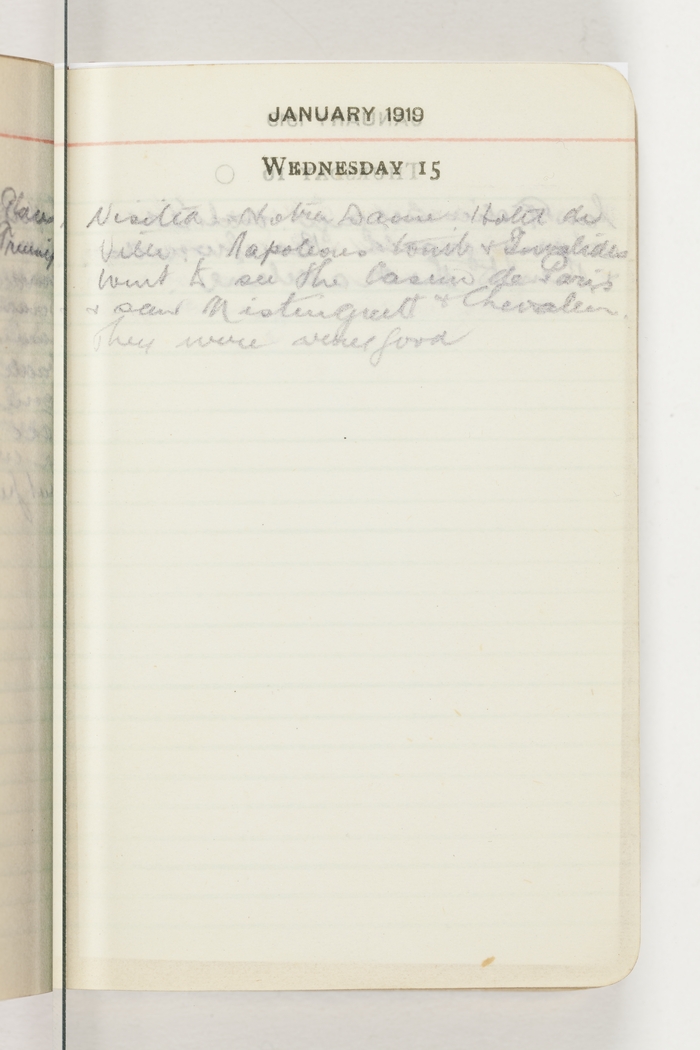 JANUARY 1919
WEDNESDAY 15
Visited Notre Dame Hotel de
Ville. Napoleons tomb & Invalides
Went to see the Casino de Paris
& saw Mistinguett & Chevalier.
They were very good